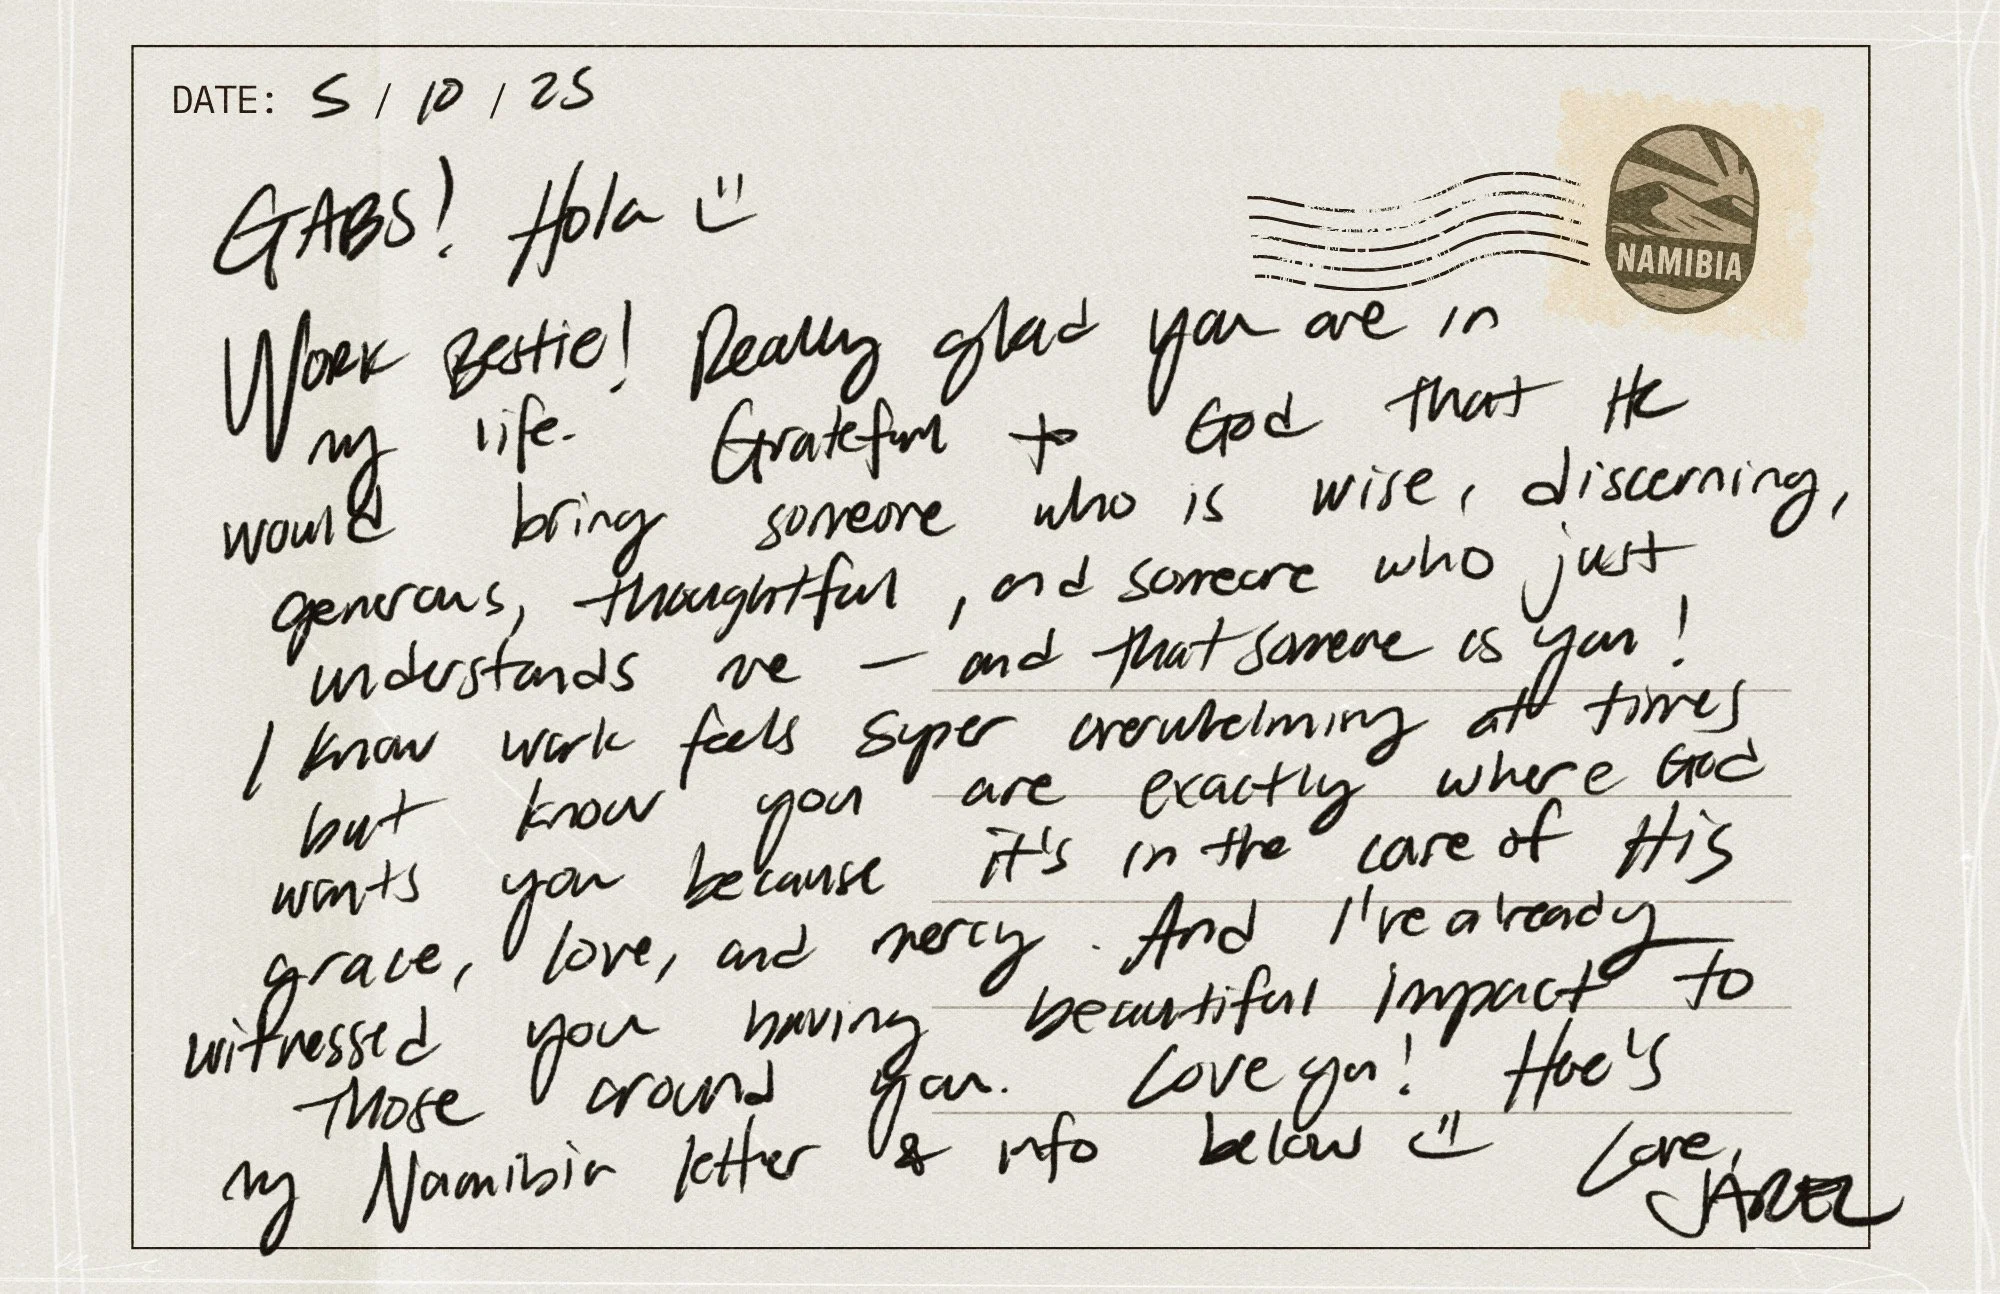 DATE: 5 / 10 / 25
GABS! Hola
NAMIBIA
Work Bestie! Really glad you are in
my life. Grateful to God that He
would bring someone who is wise, discerning,
generous, thoughtful, and someone who just
understands me — and that someone is you!
I know work feels super overwhelming at times
but know you are exactly where God
wants you because it's in the care of His
grace, love, and mercy. And I've already
witnessed you having beautiful impact to
those around you. Love you! Here's
my Namibia letter & info below
Love,
JAREL